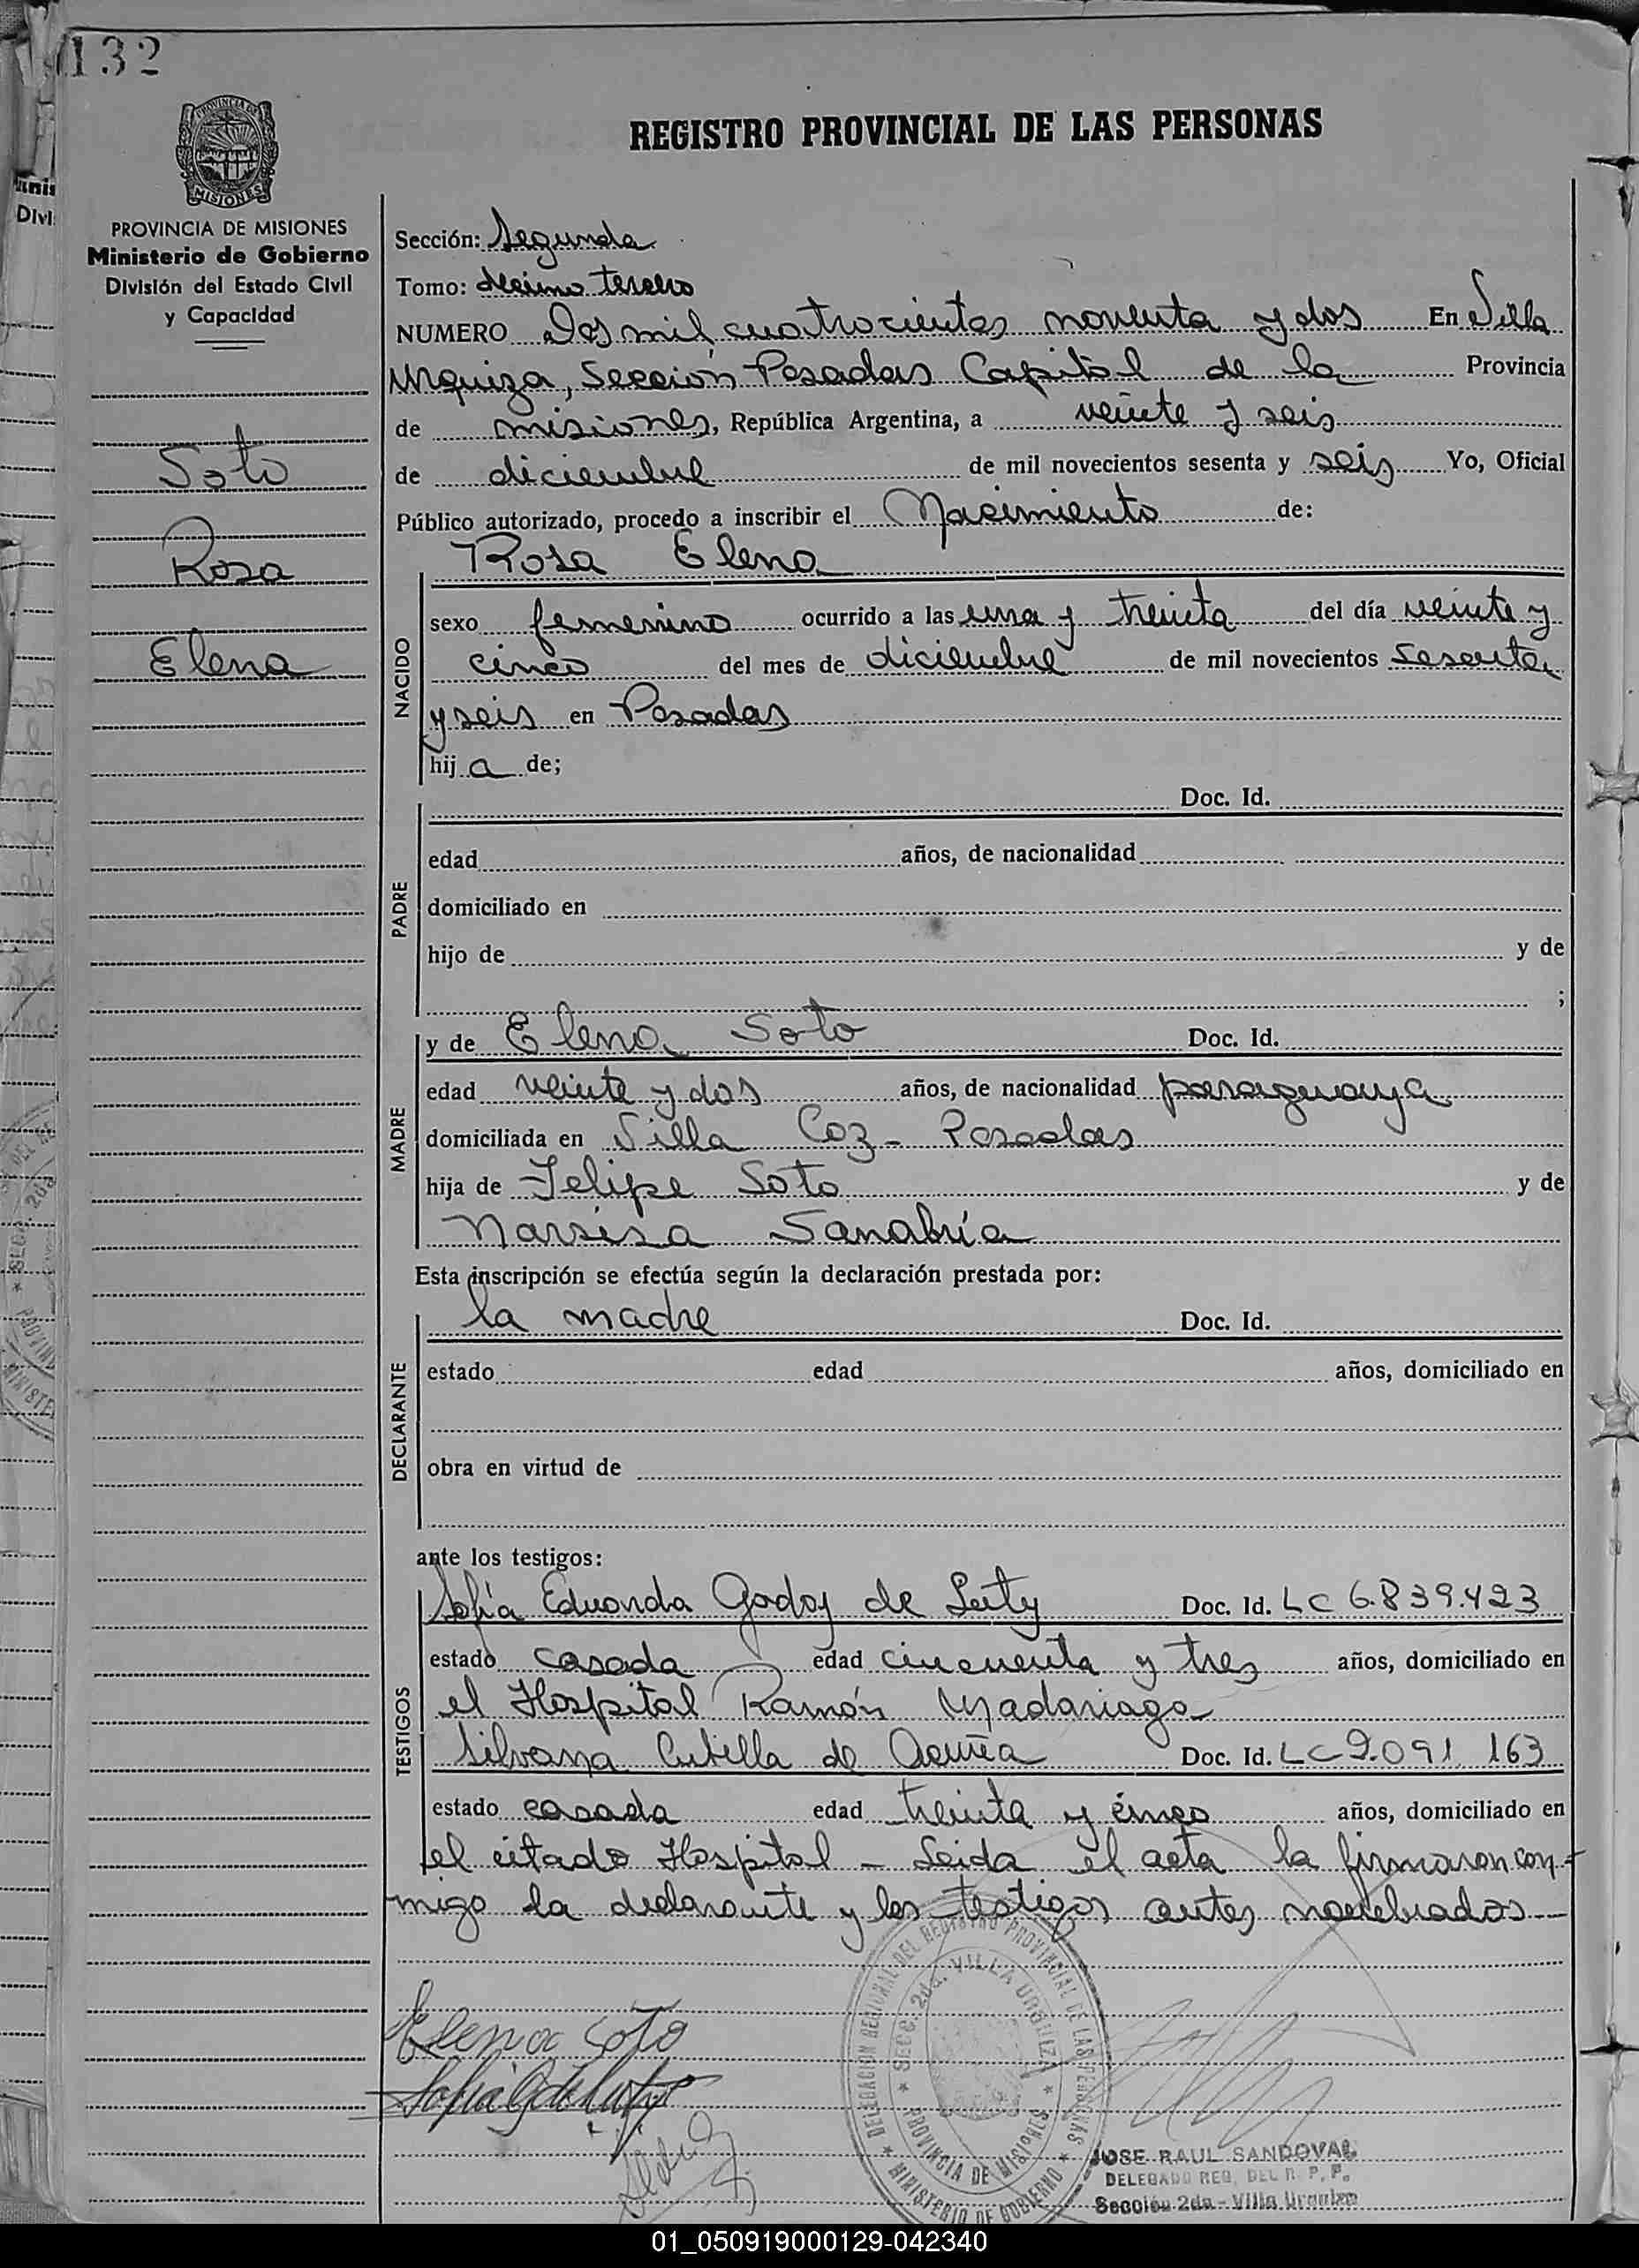 132
PROVINCIA DE
MISIONES
REGISTRO PROVINCIAL DE LAS PERSONAS
PROVINCIA DE MISIONES
Ministerio de Gobierno
División del Estado Civil
y Capacidad
Soto
Rosa
Elena
Sección: Segunda
Tomo: decimo tercero
NUMERO Dos mil cuatrocientos noventa y dos En Villa
Urquiza, Sección Posadas Capital de la Provincia
de misiones, República Argentina, a veinte y seis
de diciembre de mil novecientos sesenta y seis Yo, Oficial
Público autorizado, procedo a inscribir el Nacimiento de:
Rosa Elena
NACIDO
sexo femenino ocurrido a las una y treinta del día veinte y
cinco del mes de diciembre de mil novecientos sesenta
y seis en Posadas
hija de;
PADRE
Doc. Id.
edad años, de nacionalidad
domiciliado en
hijo de y de
;
MADRE
y de Elena Soto Doc. Id.
edad veinte y dos años, de nacionalidad paraguaya
domiciliada en Villa Coz - Posadas
hija de Felipe Soto y de
Narsisa Sanabria
Esta inscripción se efectúa según la declaración prestada por:
DECLARANTE
la madre Doc. Id.
estado edad años, domiciliado en
obra en virtud de
ante los testigos:
TESTIGOS
Sofía Eduarda Godoy de Doc. Id. LC 6.839.423
estado casada edad cincuenta y tres años, domiciliado en
el Hospital Ramón Madariaga
Silvana de Acuña Doc. Id. LC 9.091.163
estado casada edad treinta y cinco años, domiciliado en
el citado Hospital - Leida el acta la firmaron con-
migo la declarante y los testigos antes nombrados
Elena Soto
Sofia G de
DELEGACION REGIONAL DEL REGISTRO PROVINCIAL DE LAS PERSONAS
* MINISTERIO DE GOBIERNO *
* SECC. 2da. VILLA URQUIZA *
PROVINCIA DE MISIONES
JOSE RAUL SANDOVAL
DELEGADO REG. DEL R. P. P.
Sección 2da - Villa Urquiza
01_050919000129-042340